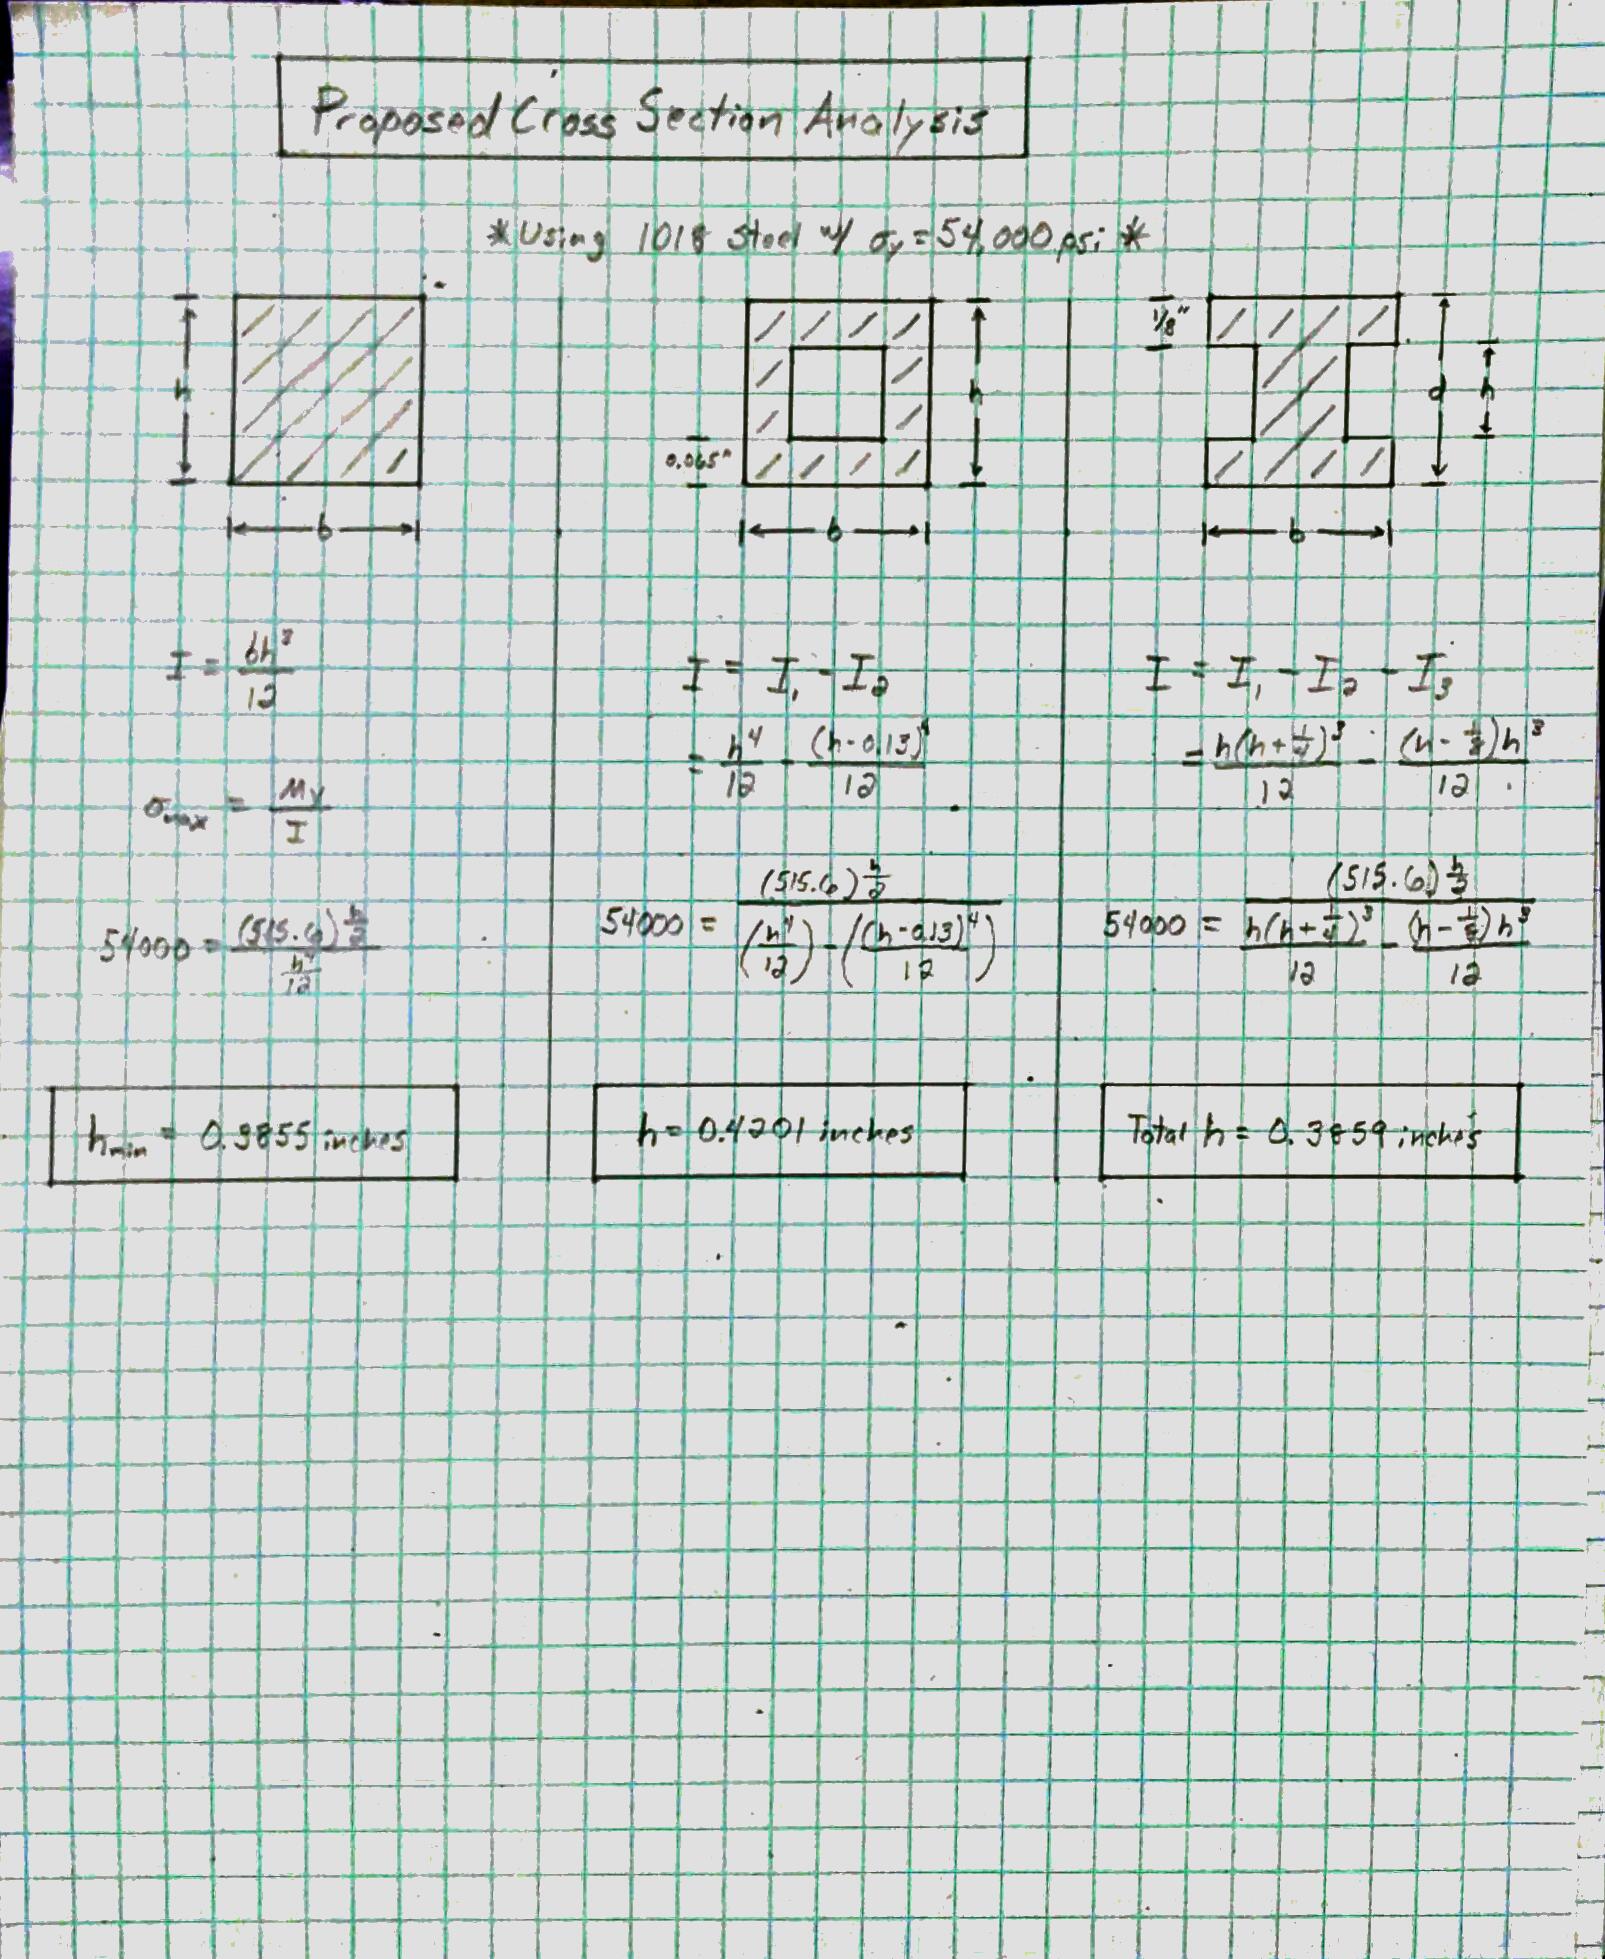 Proposed Cross Section Analysis
*Using 1018 Steel w/ σy = 54,000 psi *
h
b
0.065"
h
b
1/8"
d
h
b
I = bh³/12
σmax = My/I
54000 = (515.6) h/2 / (h⁴/12)
hmin = 0.3855 inches
I = I₁ - I₂
= h⁴/12 - (h-0.13)⁴/12
54000 = (515.6) h/2 / ((h⁴/12) - ((h-0.13)⁴/12))
h = 0.4201 inches
I = I₁ - I₂ - I₃
= h(h+1/4)³/12 - (h-1/8)h³/12
54000 = (515.6) h/2 / (h(h+1/4)³/12 - (h-1/8)h³/12)
Total h = 0.3859 inches